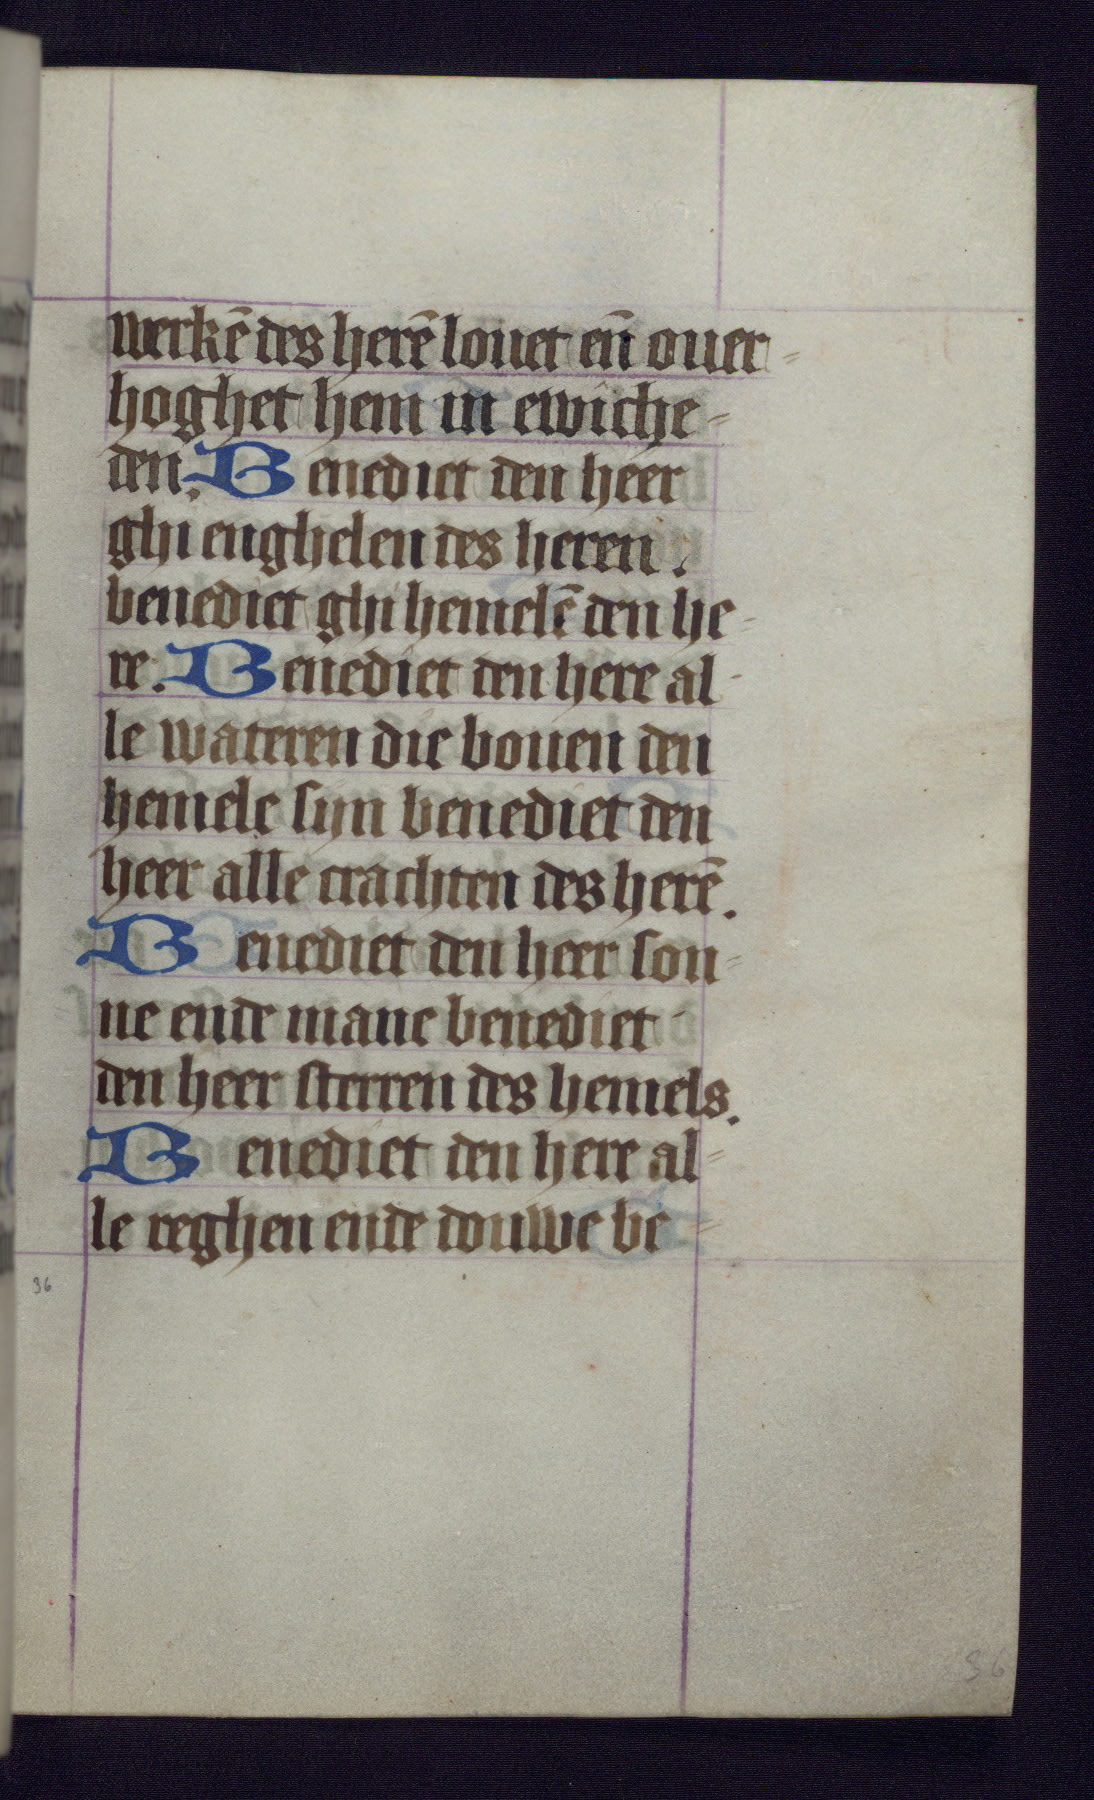 werkē des herē louet eñ ouer-
hoghet hem in ewiche-
den. Benediet den heer
ghi enghelen des heren.
benediet ghi hemelē den he-
re. Benediet den here al-
le wateren die bouen den
hemele sijn benediet den
heer alle crachten des herē.
Benediet den heer son-
ne ende mane benediet
den heer sterren des hemels.
Benediet den here al-
le reghen ende douwe be-
36
36